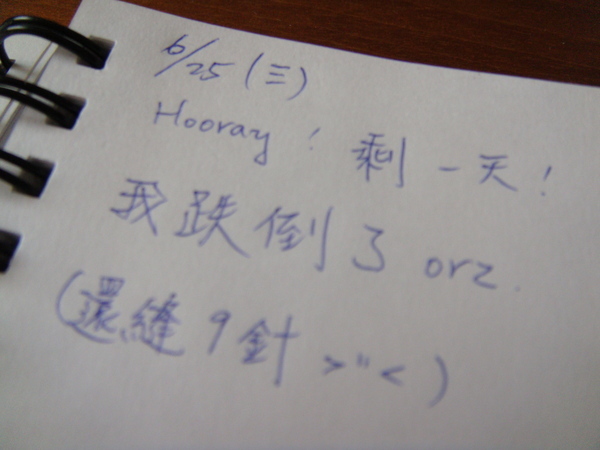 6/25 (三)
Hooray! 剩一天!
我跌倒了 orz.
(還縫9針 >"<)